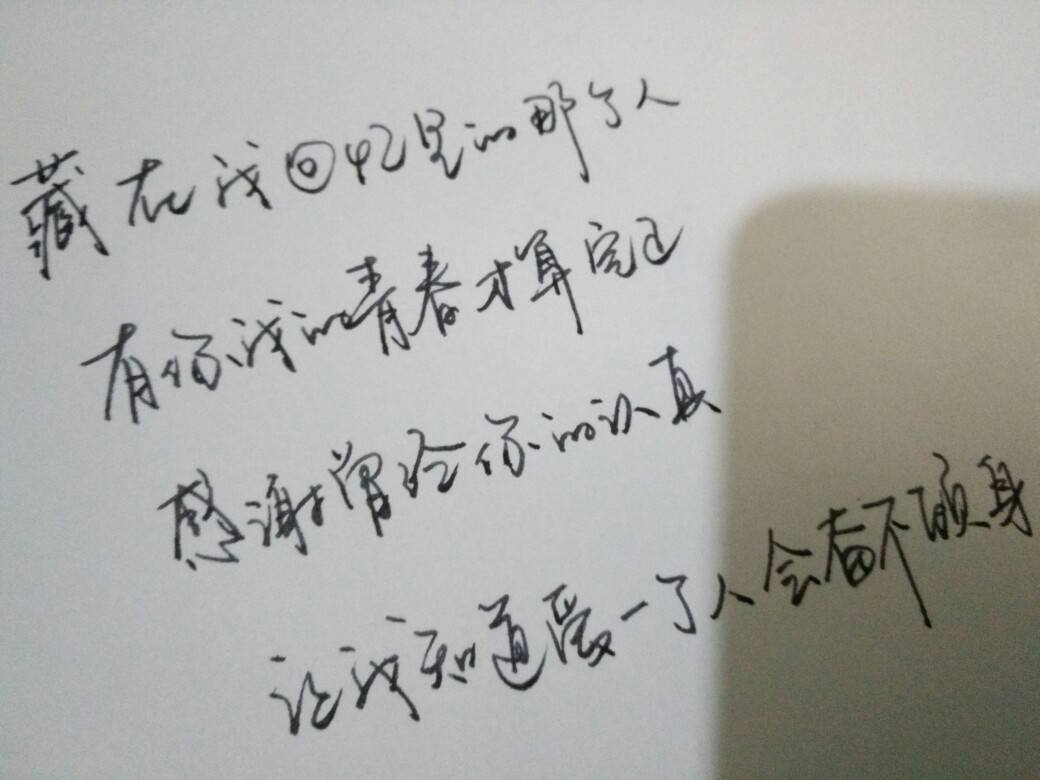 藏在我回忆里的那个人
有你我的青春才算完
感谢曾经你的认真
让我知道爱一个人会奋不顾身